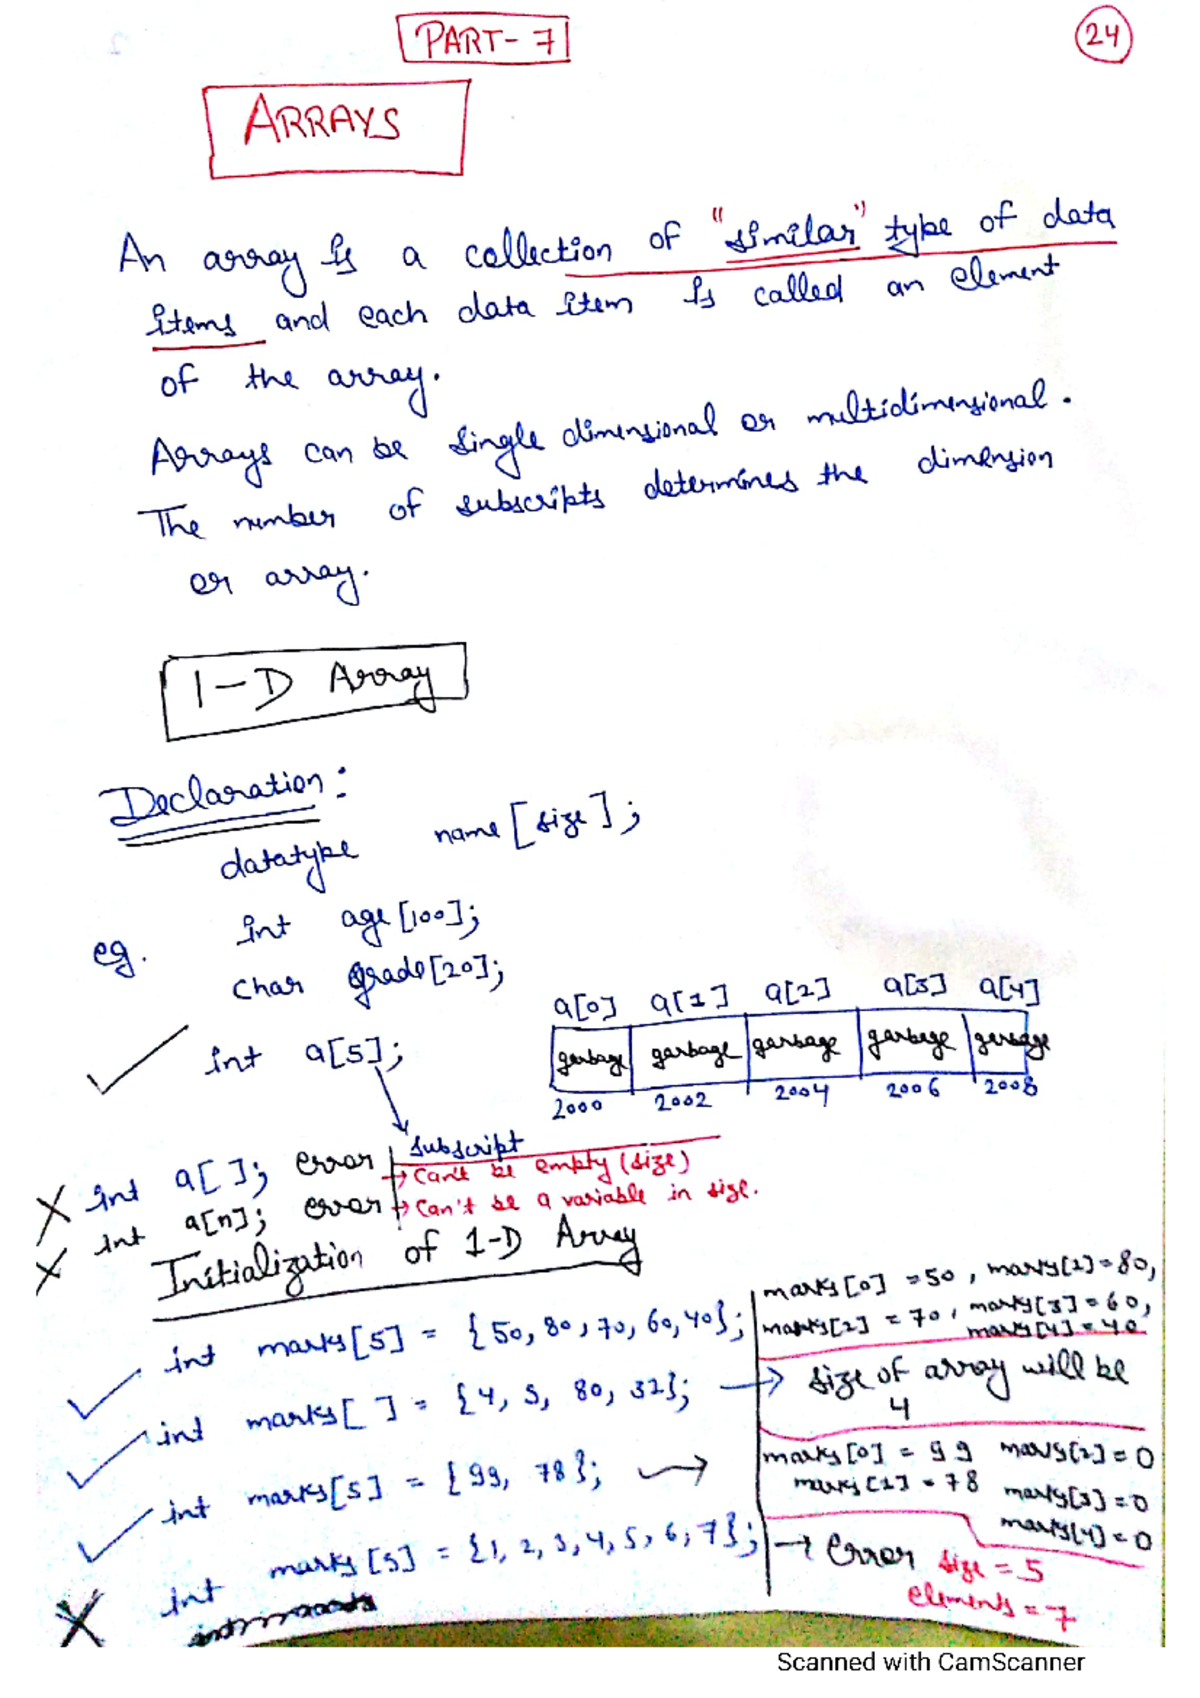 PART-7
24
ARRAYS
An array is a collection of "similar" type of data
items and each data item is called an element
of the array.
Arrays can be single dimensional or multidimensional.
The number of subscripts determines the dimension
or array.
1-D Array
Declaration:
datatype name[size];
eg. int age[100];
char grade[20];
int a[5];
a[0] a[1] a[2] a[3] a[4]
garbage garbage garbage garbage garbage
2000 2002 2004 2006 2008
subscript
int a[ ]; error → can't be empty (size)
int a[n]; error → can't be a variable in size.
Initialization of 1-D Array
int marks[5] = {50, 80, 70, 60, 40};
marks[0] = 50, marks[1] = 80,
marks[2] = 70, marks[3] = 60,
marks[4] = 40
int marks[ ] = {4, 5, 80, 32}; → size of array will be
4
int marks[5] = {99, 78}; →
marks[0] = 99 marks[2] = 0
marks[1] = 78 marks[3] = 0
marks[4] = 0
int marks[5] = {1, 2, 3, 4, 5, 6, 7}; → Error size = 5
elements = 7
Scanned with CamScanner